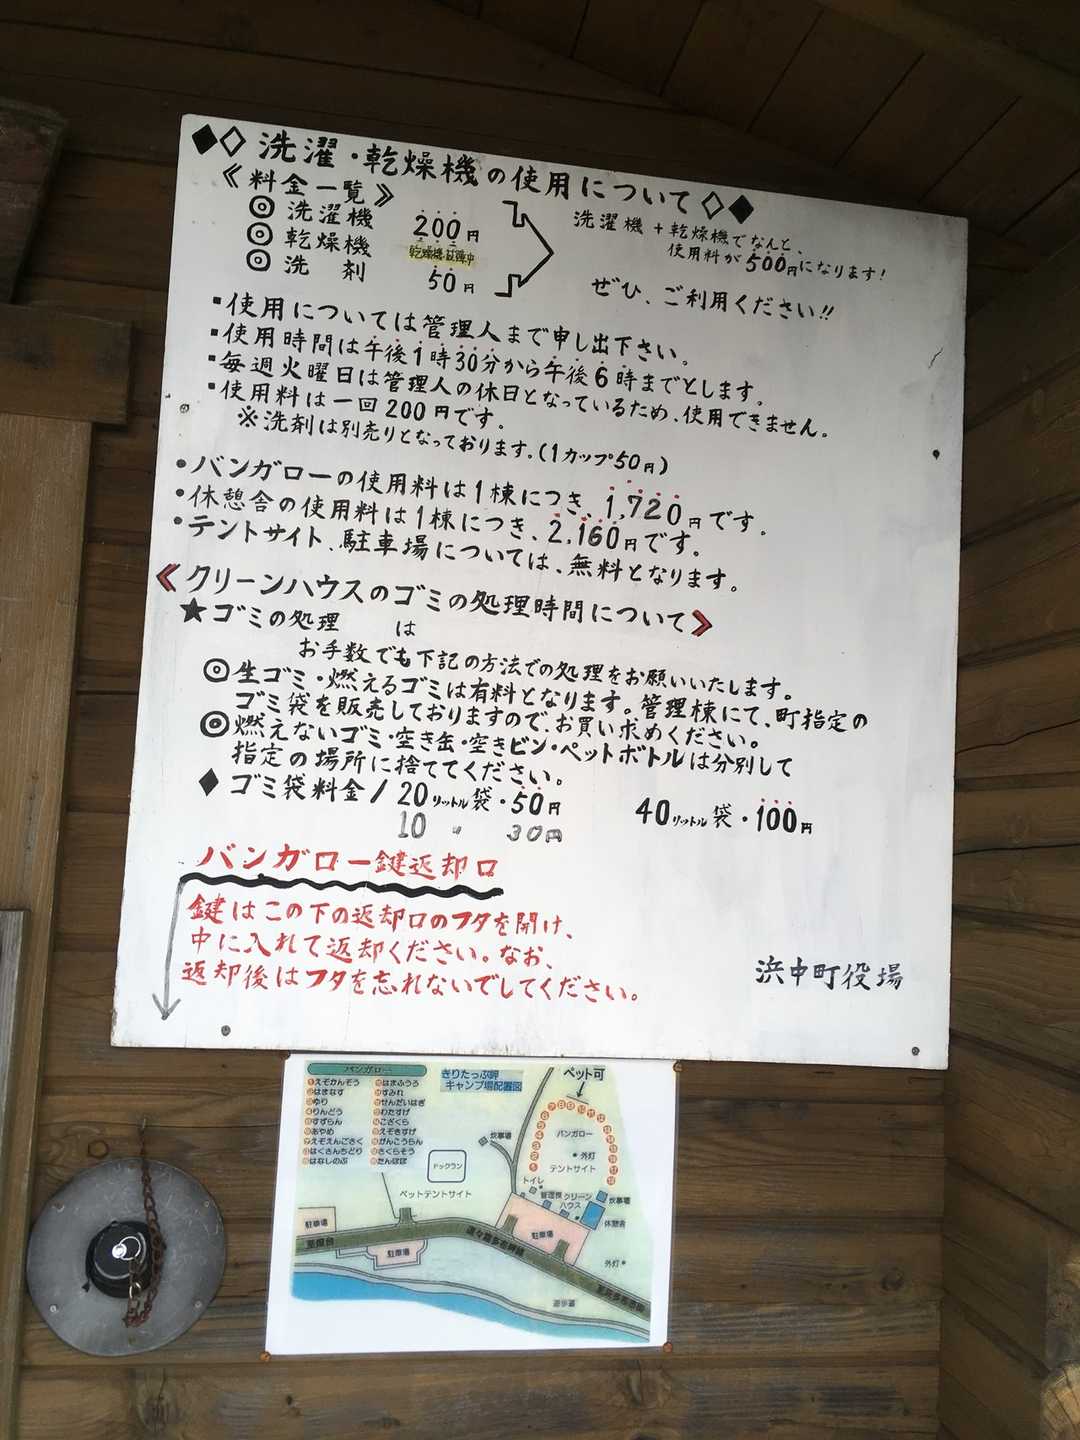 ◆◇洗濯・乾燥機の使用について◇◆
《料金一覧》
◎洗濯機 200円
◎乾燥機 乾燥機・故障中
◎洗 剤 50円
洗濯機+乾燥機でなんと、
使用料が500円になります!
ぜひ、ご利用ください!!
▪使用については管理人まで申し出下さい。
▪使用時間は午後1時30分から午後6時までとします。
▪毎週火曜日は管理人の休日となっているため、使用できません。
▪使用料は一回200円です。
※洗剤は別売りとなっております。(1カップ50円)
•バンガローの使用料は1棟につき、1,720円です。
•休憩舎の使用料は1棟につき、2,160円です。
•テントサイト、駐車場については、無料となります。
《クリーンハウスのゴミの処理時間について》
★ゴミの処理 は
お手数でも下記の方法での処理をお願いいたします。
◎生ゴミ・燃えるゴミは有料となります。管理棟にて、町指定の
ゴミ袋を販売しておりますので、お買い求めください。
◎燃えないゴミ・空き缶・空きビン・ペットボトルは分別して
指定の場所に捨ててください。
◆ゴミ袋料金/20リットル袋・50円 40リットル袋・100円
10 〃 30円
バンガロー鍵返却口
鍵はこの下の返却口のフタを開け、
中に入れて返却ください。なお、
返却後はフタを忘れないでしてください。
浜中町役場
バンガロー
①えぞかんぞう
②はまなす
③ゆり
④りんどう
⑤すずらん
⑥あやめ
⑦えぞえんごさく
⑧はくさんちどり
⑨はなしのぶ
⑩はまふうろ
⑪すみれ
⑫せんだいはぎ
⑬わたすげ
⑭こざくら
⑮えぞきすげ
⑯がんこうらん
⑰さくらそう
⑱たんぽぽ
きりたっぷ岬
キャンプ場配置図
ペット可
バンガロー
外灯
テントサイト
炊事場
ドックラン
ペットテントサイト
トイレ
管理棟
クリーン
ハウス
炊事場
休憩舎
駐車場
駐車場
駐車場
外灯
遊歩道